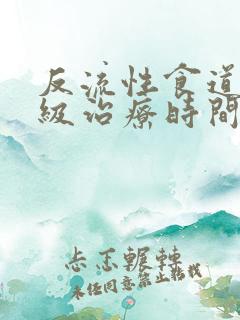 反流性食道
級治療時間
忐忑輾轉
未经同意禁止転载